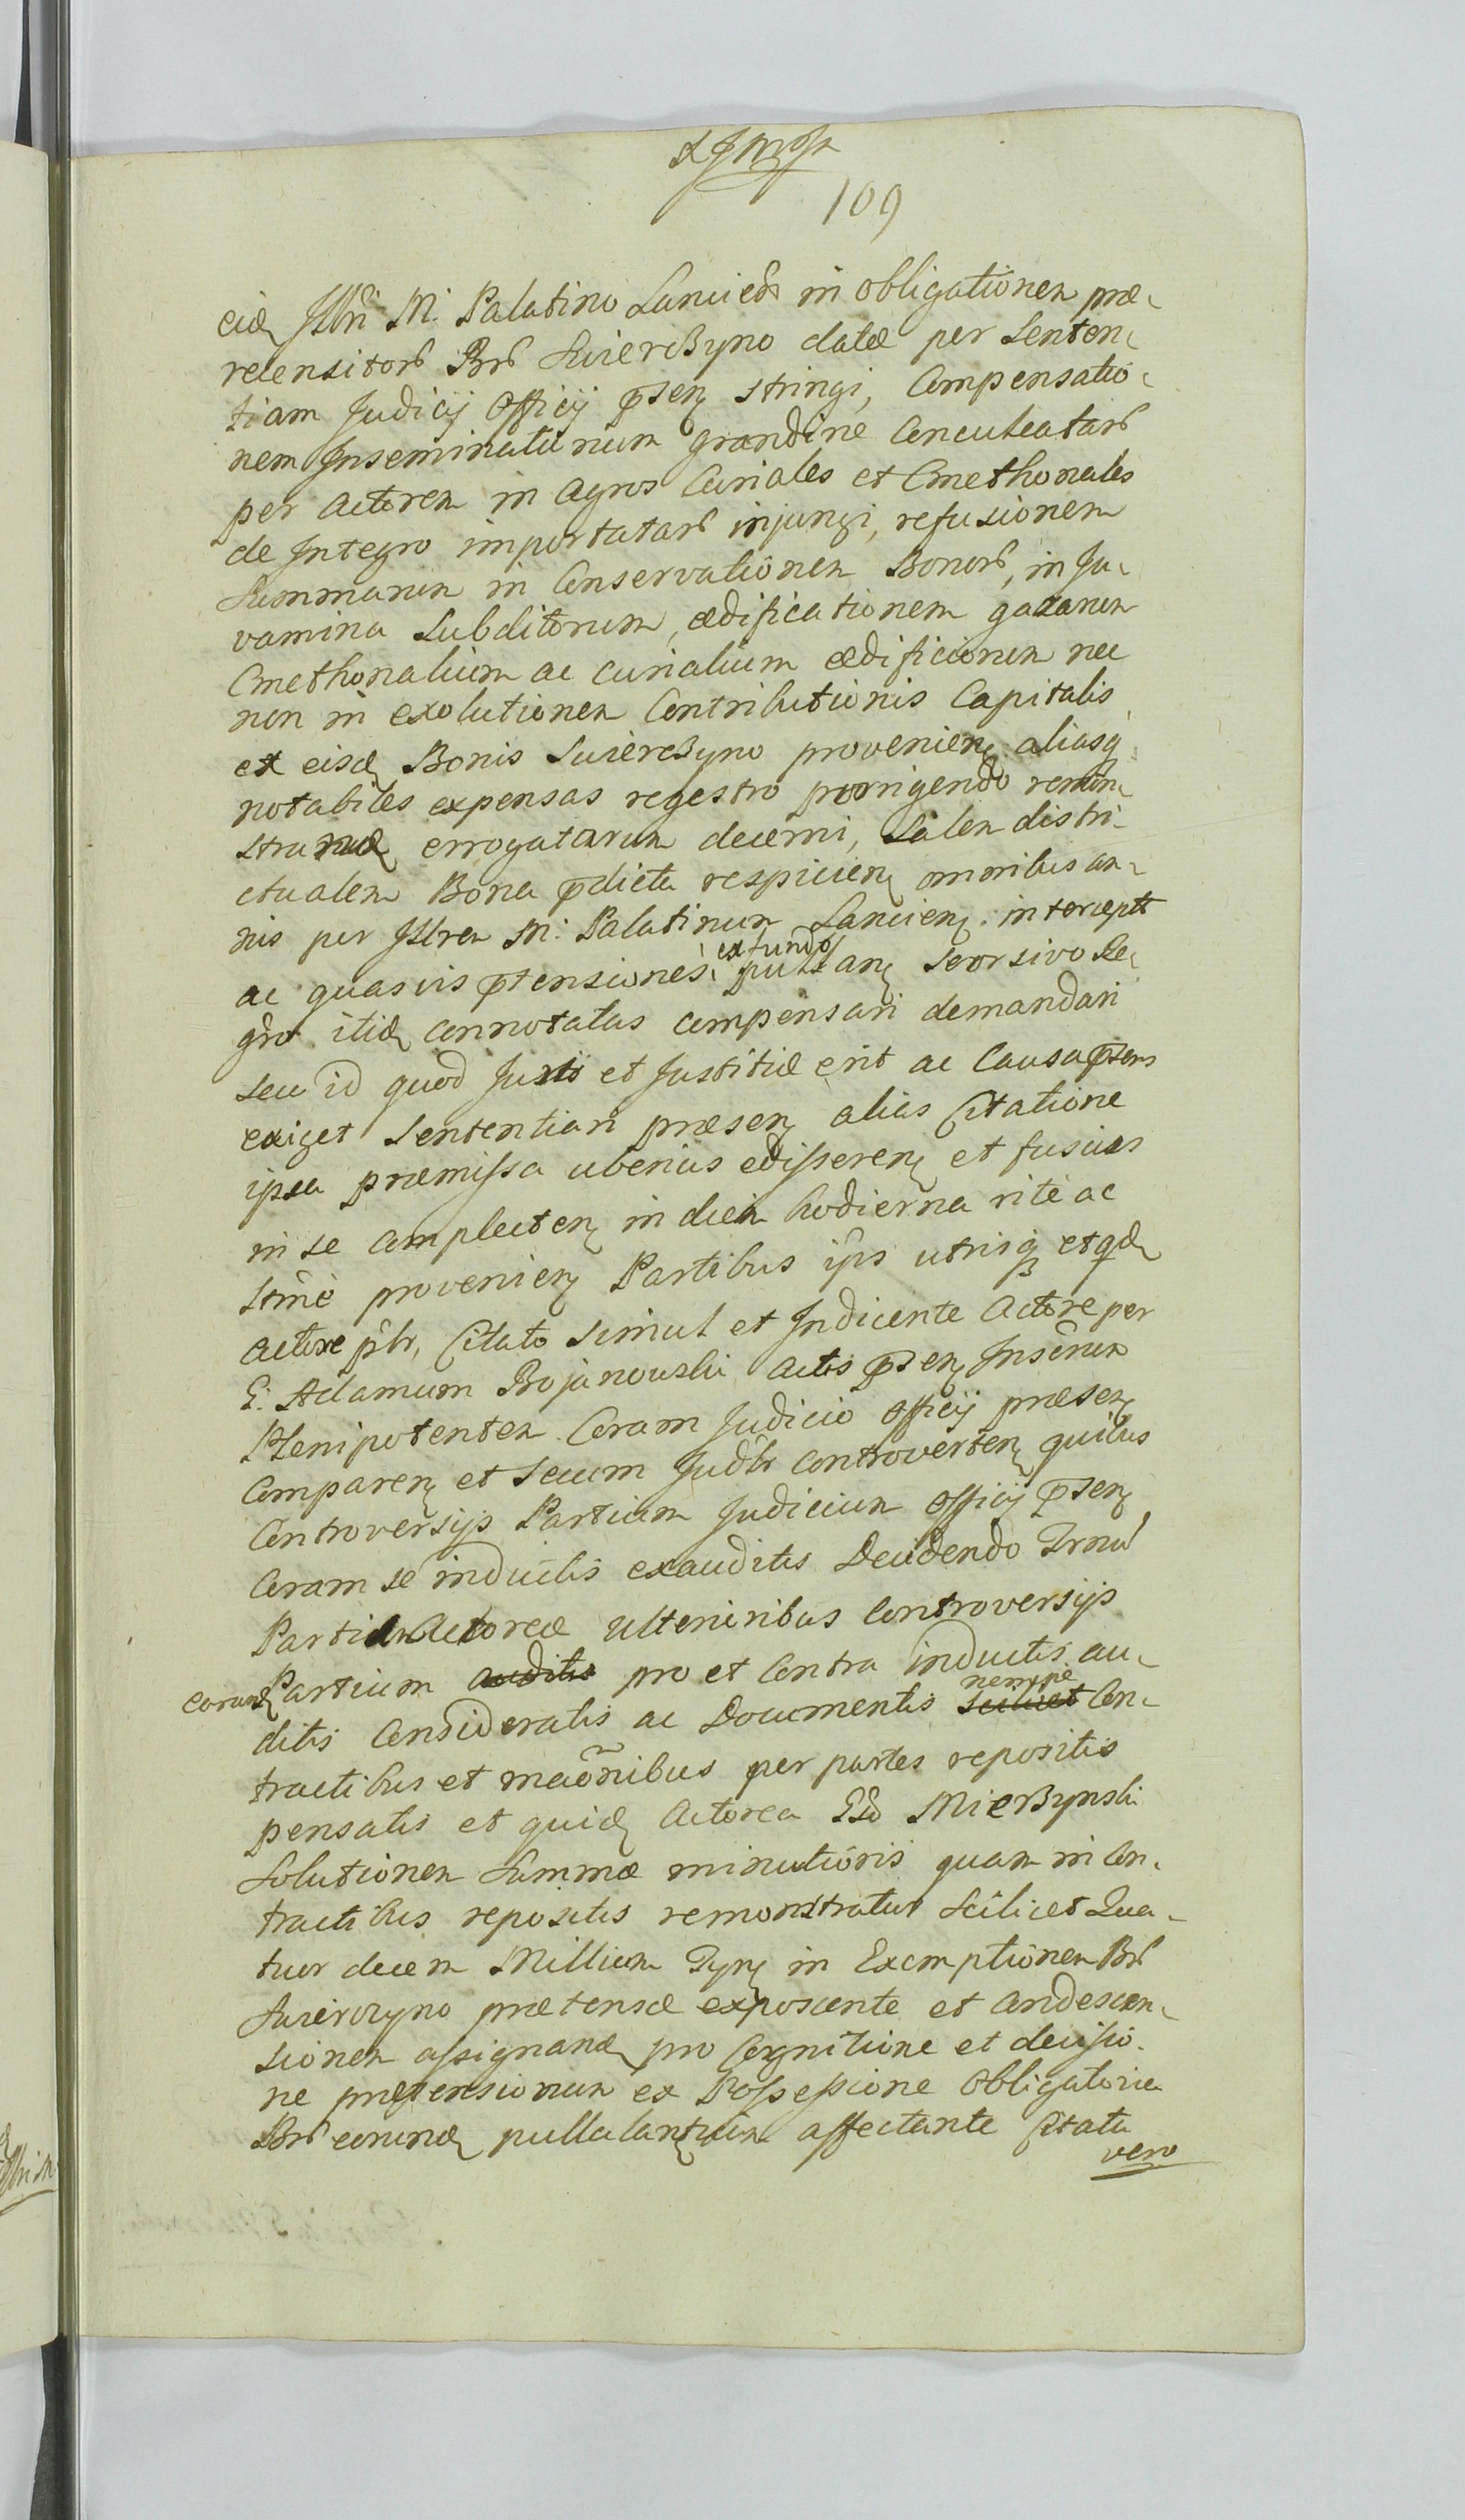 109
eid Illri M. Palatino Lancien in obligationem præ-
recensitor Br Swierczyno datæ per Senten-
tiam Judicij Officij psen stringi, Compensatio-
nem Inseminaturum grandine Conculcatar
per actorem in agros Curiales et Cmethonales
de Integro importatar injungi, refusionem
Summarum in Conservationem Bonor, in Ju-
vamina Subditorum, ædificationem gazarum
Cmethonalium ac curialium ædificiorum nec
non in exolutionem Contributionis Capitalis
ex eisd Bonis Swierczyno provenien aliasq
notabiles expensas regestro porrigendo remon-
strand errogatarum decerni, Salem distri-
ctualem Bona pdicta respicien omnibus an-
nis per Illrem M. Palatinum Lancien. intercept
ex fundo
ac quasvis ptensiones pullan Seorsivo Re-
gro itid connotatas compensari demandari
seu id quod Juris et Justitiæ erit ac Causa psens
exiget Sententiari præsen alias Citatione
ipsa præmissa uberius edisseren et fusius
in se Complecten in diem hodierna rite ac
ltme provenien Partibus ips utrisq et qd
actore pltr, Citato simul et Indicente Actore per
G. Adamum Bojanowski actis psen Inserum
Plenipotentem Coram Judicio Officij præsen
Comparen et Secum Judltr Controverten quibus
Controversijs Partium Judicium Officij psen
Coram se inductis exauditis Decidendo Trnul
Partium Actoreæ Ulterioribus Controversijs
earund Partium auditis pro et Contra inductis au-
nempe
ditis Consideratis ac Documentis scilicet Con-
tractibus et maonibus per partes repositis
pensatis et quid Actorea Gso Mierzynski
Solutionem Summæ minutioris quam in Con-
tractibus repositis remonstratur scilicet Qua-
tuor decem Millium Tyn in Exemptionem Br
Swierczyno prætensæ exposcente et Condescen-
sionem assignand pro Cognitione et decisio-
ne prætensionum ex Possessione Obligatoria
Br eorund pullulantium affectante Citata
vero